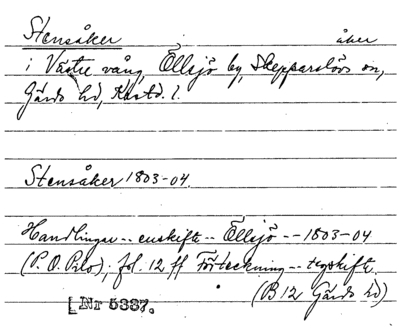 Stensåker åker
i Västre vång, Ellsjö by, Skepparslövs sn,
Gärds hd, Kristd. l.
Stensåker 1803-04.
Handlingar -- enskifte -- Ellsjö -- 1803-04
(P. O. Pilo); fol. 12 ff Förteckning -- tegskifte.
(B 12 Gärds hd)
[Nr 5337.